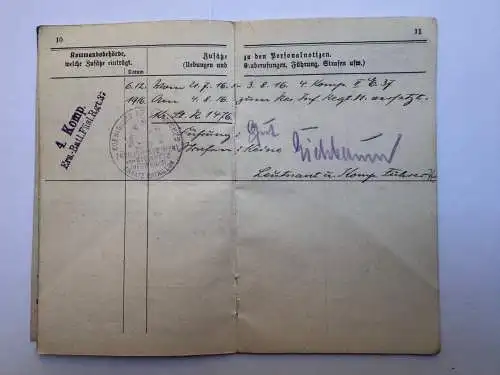 10
11
Kommandobehörde, welche Zusätze einträgt.
Datum
Zusätze zu den Personalnotizen.
(Uebungen und Einberufungen, Führung, Strafen usw.)
4. Komp.
Ers.-Batl. Füs. Rgt. 37
6.12. Vom 21.7.16 - 3.8.16 4. Komp. E. 37
1916 Am 4.8.16 zum Res. Inf. Regt. 11. versetzt.
Kr. St. R. 1476
Führung: Gut
Strafen: Keine
Eichbaum
Leutnant u. Komp. Führer